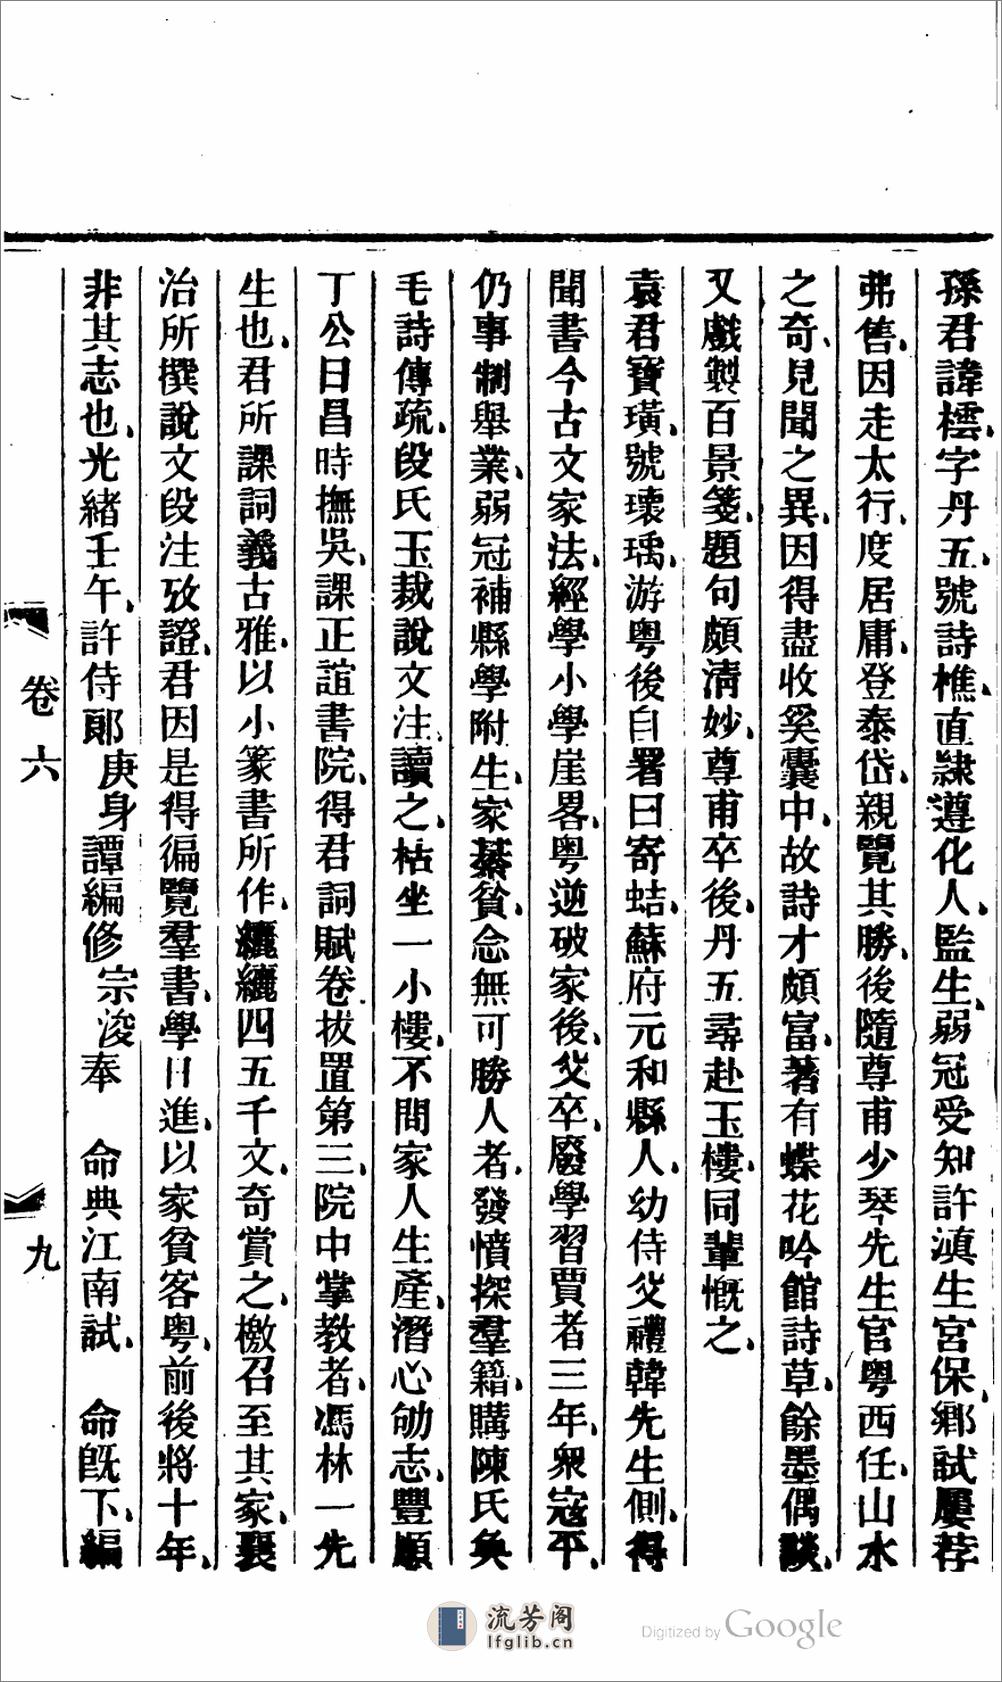 孫君諱橒字丹五號詩樵直隷遵化人監生弱冠受知許滇生宮保鄉試屢荐
弗售因走太行度居庸登泰岱親覽其勝後隨尊甫少琴先生官粤西任山水
之奇見聞之異因得盡收奚囊中故詩才頗富著有蝶花吟館詩草餘墨偶談
又戲製百景箋題句頗清妙尊甫卒後丹五尋赴玉樓同輩慨之
袁君寶璜號瓌瑀游粤後自署曰寄蛣蘇府元和縣人幼侍父禮韓先生側得
聞書今古文家法經學小學崖畧粤逆破家後父卒廢學習賈者三年衆寇平
仍事制舉業弱冠補縣學附生家綦貧念無可勝人者發憤探羣籍購陳氏奐
毛詩傳疏段氏玉裁說文注讀之枯坐一小樓不問家人生產潛心劬志豐順
丁公日昌時撫吳課正誼書院得君詞賦卷拔置第三院中掌教者馮林一先
生也君所課詞義古雅以小篆書所作纚纚四五千文奇賞之檄召至其家襄
治所撰說文段注攷證君因是得徧覽羣書學日進以家貧客粤前後將十年
非其志也光緒壬午許侍郞庚身譚編修宗浚奉　命典江南試　命旣下編
卷六
九
流芳阁
lfglib.cn
Digitized by Google